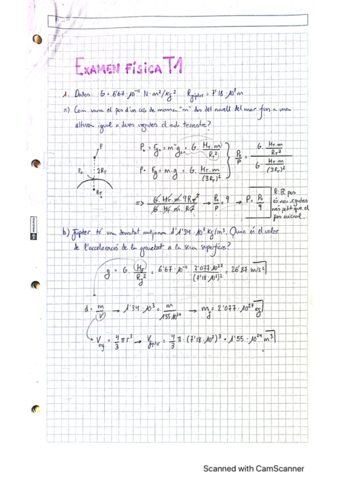 EXAMEN FÍSICA T1
1. Dades: G = 6'67·10⁻¹¹ N·m²/kg² R júpiter = 7'18·10⁷ m
a) Com varia el pes d'un cos de massa "m" des del nivell del mar fins a una
altura igual a dues vegades el radi terrestre?
P₀ = Fg = m·g = G · M_T·m / R_T²
P = Fg = m·g = G · M_T·m / (3R_T)²
P₀/P = G · M_T·m / R_T² / G · M_T·m / (3R_T)²
P
P₀ 2R_T
R_T
=> G·M_T·m·9R_T² / G·M_T·m·R_T² → P₀/P = 9 → P = P₀/9
R: El pes
b) Júpiter té una densitat mitjana 1'34·10³ kg/m³. Quin és el valor
de l'acceleració de la gravetat a la seva superfície?
g = G · M_J / R_J² = 6'67·10⁻¹¹ · 2'077·10²⁷ / (7'18·10⁷)² = 26'87 m/s²
d = m/V → 1'34·10³ = m / 1'55·10²⁴ → m_J = 2'077·10²⁷ kg
V = 4/3 π r³ → V júpiter = 4/3 π · (7'18·10⁷)³ = 1'55·10²⁴ m³
Scanned with CamScanner